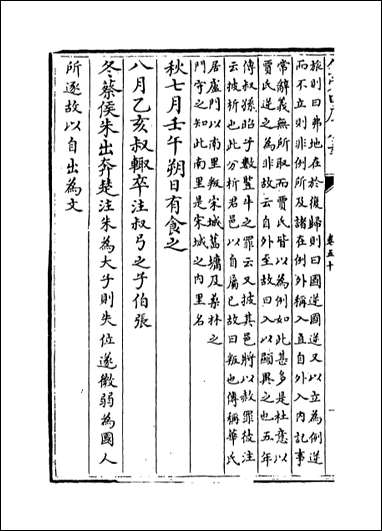 旅則曰弗地在於復歸則曰國逆國逆又以立為例逆
而不立則非例所及諸在例外稱入直自外入內記事
常辭義無所取而賈氏皆以為例如此甚多是杜意以
賈氏逆之為非故云自外至故曰入以顯異之也五年
傳叔孫昭子數豎牛之罪云又披其邑將以赦罪彼注
云披析也此分析君邑以自屬己故曰叛也傳稱華氏
居盧門以南里叛宋城舊墉及桑林之
門守之知此南里是宋城之內里名
秋七月壬午朔日有食之
八月乙亥叔輒卒注叔弓之子伯張
冬蔡侯朱出奔楚注朱為大子則失位遂微弱為國人
所逐故以自出為文
卷五十